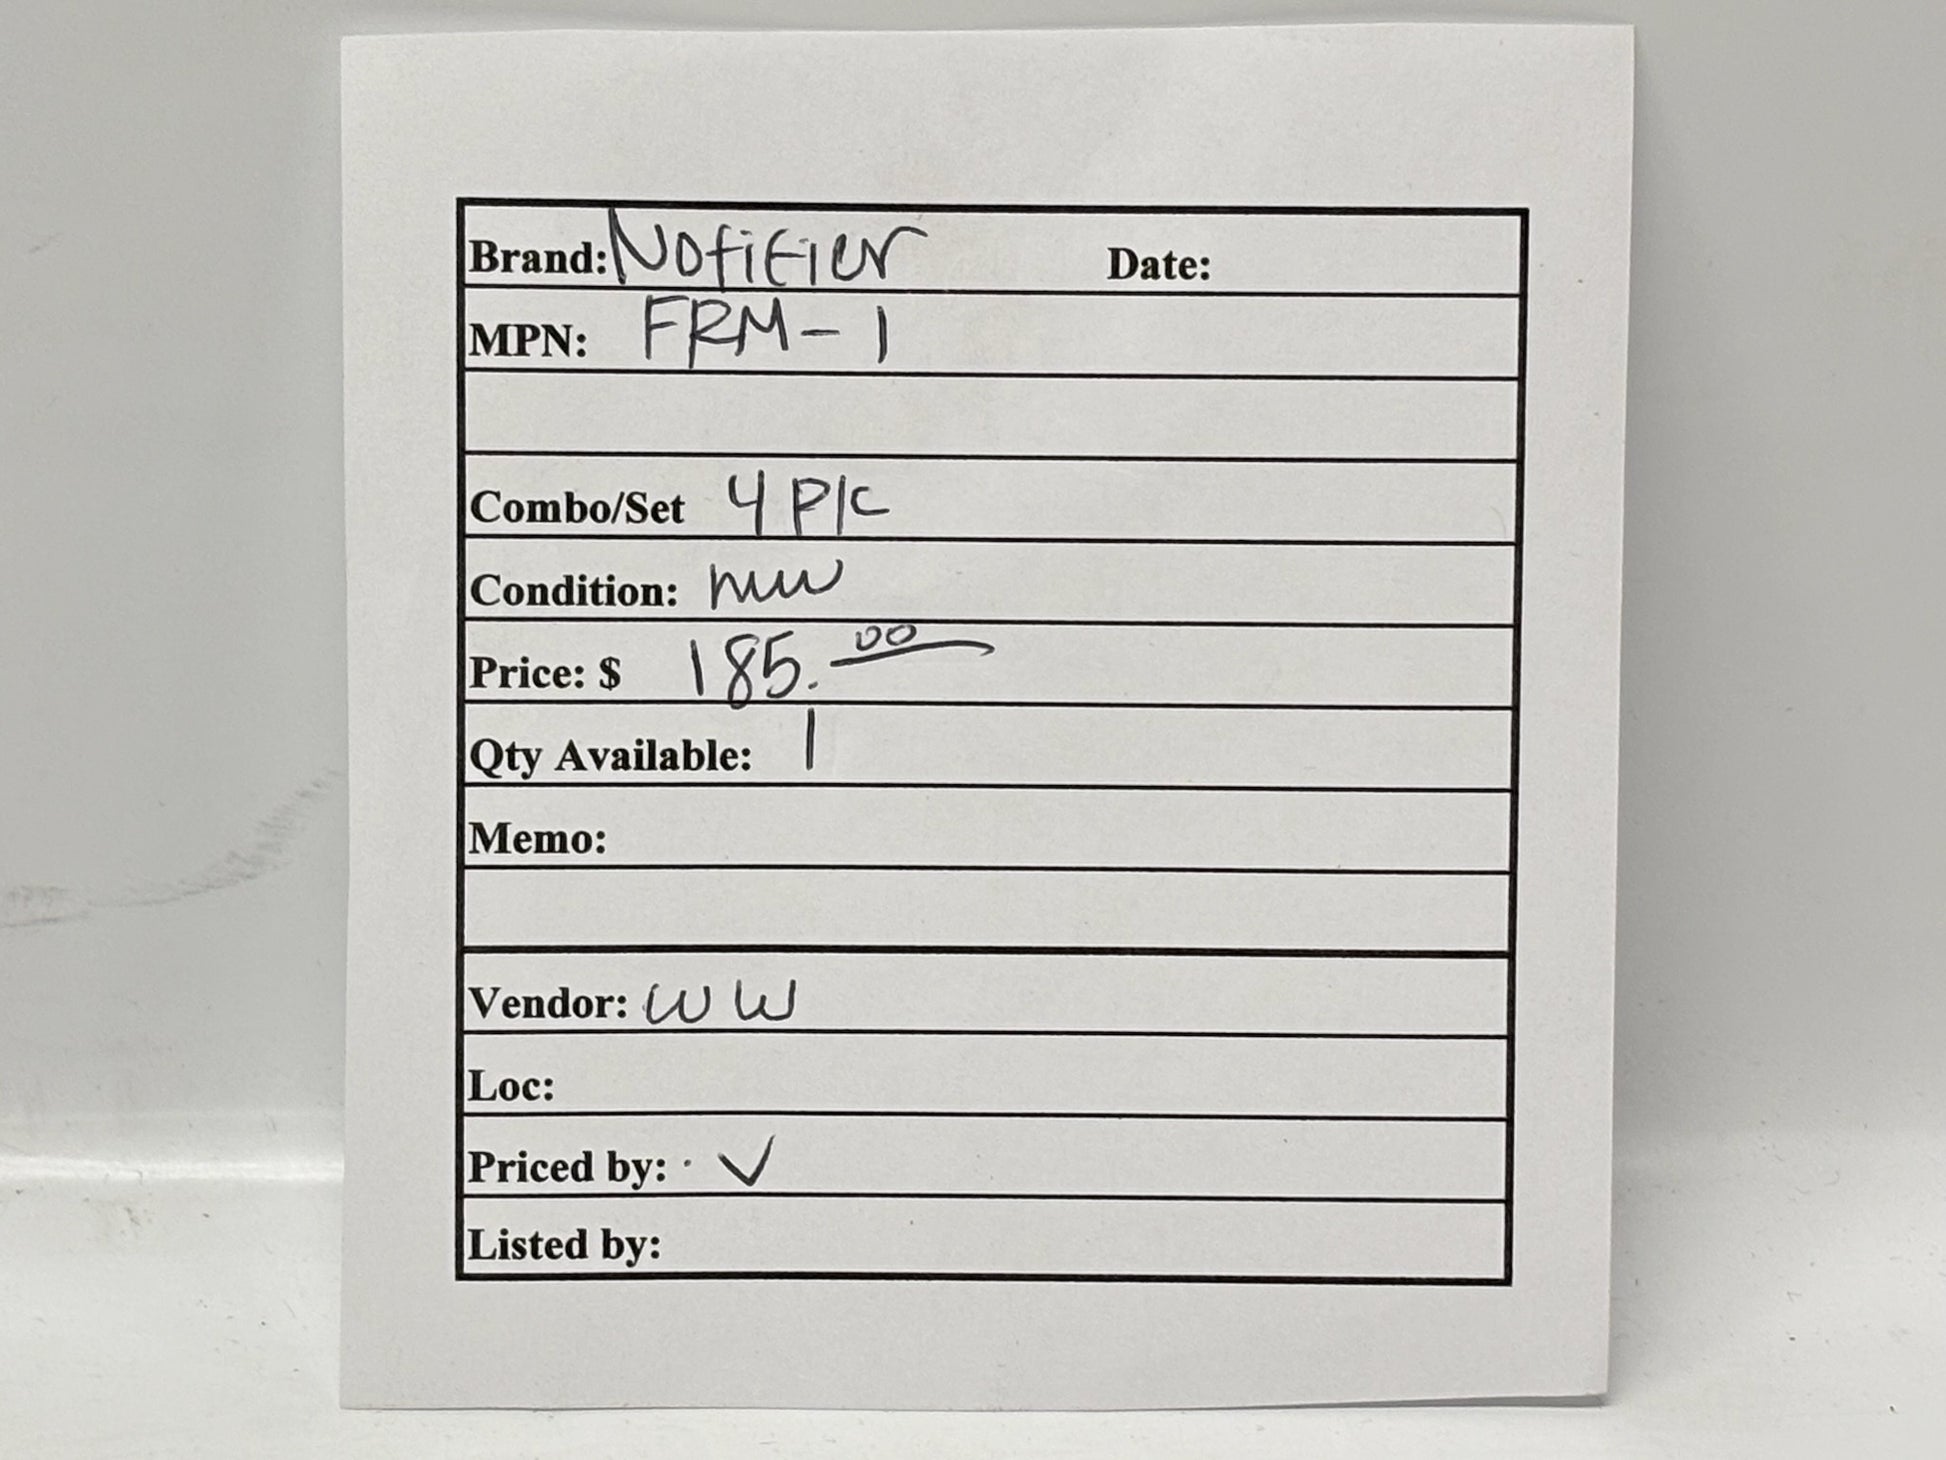 Brand: Notifier Date:
MPN: FRM-1
Combo/Set 4 P/C
Condition: new
Price: $ 185.00
Qty Available: 1
Memo:
Vendor: WW
Loc:
Priced by: V
Listed by: